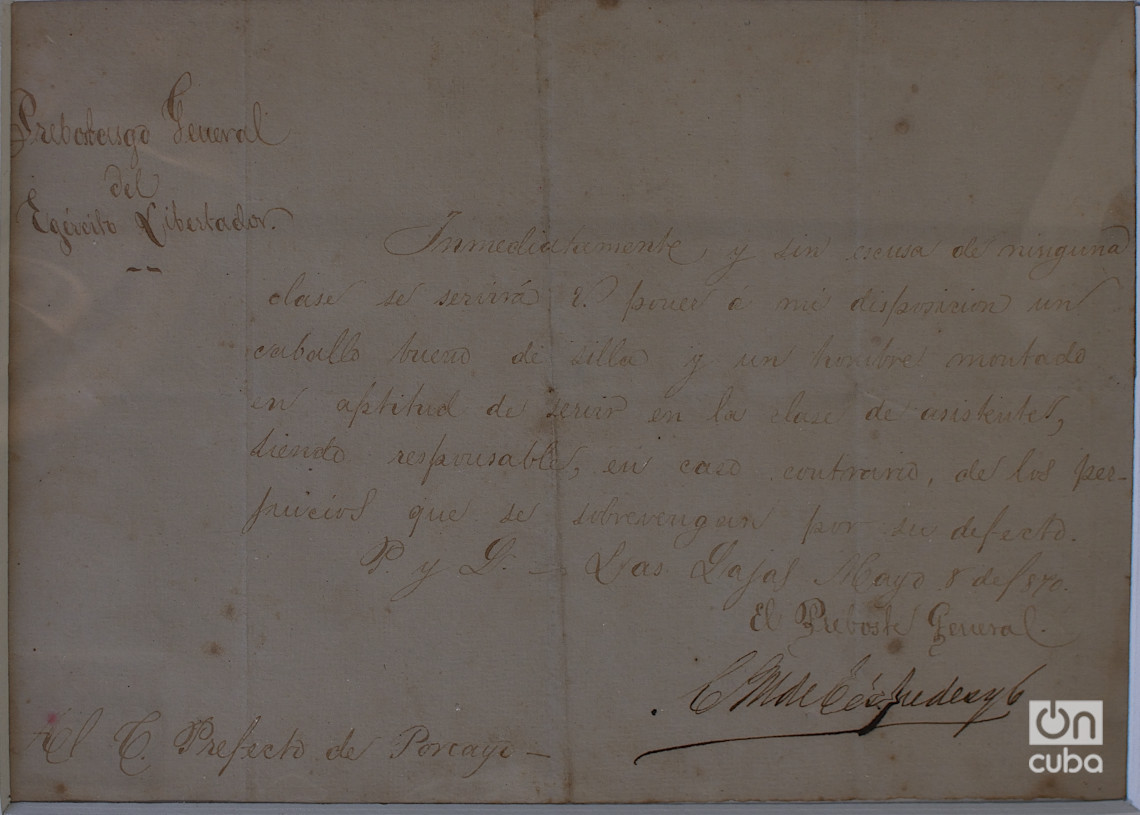 Prebostasgo General
del
Egército Libertador.
Inmediatamente, y sin escusa de ninguna
clase se servirá V. poner á mi disposicion un
caballo bueno de silla y un hombre montado
en aptitud de servir en la clase de asistente,
siendo responsable, en caso contrario, de los per-
juicios que se sobrevengan por su defecto.
P. y L. — Las Lajas Mayo 8 de 1870.
El Preboste General.
C M de Céspedes y C
Al C. Prefecto de Porcayo —
On
cuba